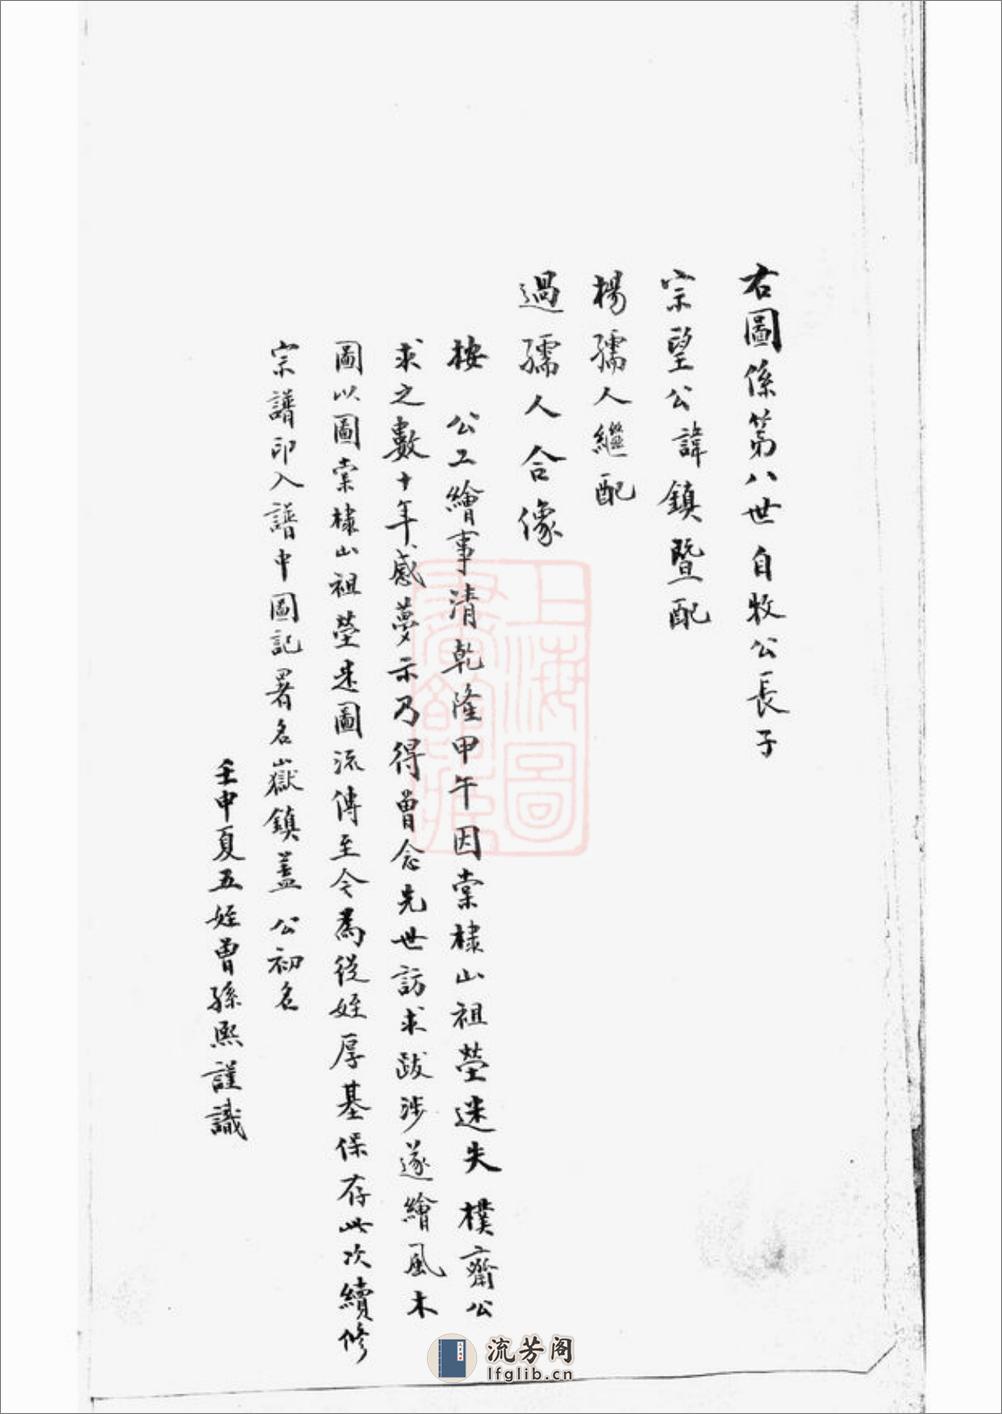 右圖係第八世自牧公長子
宗望公諱鎮暨配
楊孺人繼配
過孺人合像
按 公工繪事清乾隆甲午因棠棣山祖塋迷失 樸齋公
求之數十年感夢示乃得曾念先世訪求跋涉遂繪風木
圖以圖棠棣山祖塋迷圖流傳至今為從姪厚基保存此次續修
宗譜印入譜中圖記署名嶽鎮蓋 公初名
壬申夏五姪曾孫熙謹識
上海圖
書館藏
流芳阁
lfglib.cn